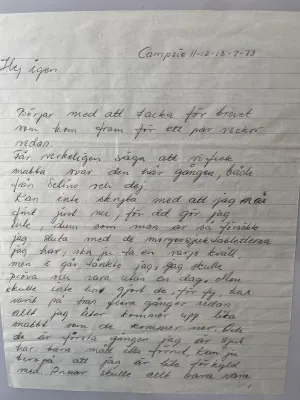 Campsie 11-12-13-7-73
Hej igen
Börjar med att tacka för brevet
som kom fram för ett par veckor
redan.
Får verkligen säga att vi fick
snabba svar den här gången, både
från Selino och dej.
Kan inte skryta med att jag mår
fint just nu, för det gör jag
inte, dum som man är så försökte
jag sluta med de morgonsjuktabletterna
jag har, ska ju ta en varje kväll,
men i går tänkte jag, jag skulle
pröva och vara utan en dag. Men
skulle inte ha gjort de för jag har
varit på tran flera gånger redan
allt jag äter kommer upp lika
snabbt som de kommer ner. Och
de är första gången jag är sjuk
har bara mått illa förut. Kan ju
bero på att jag är lite förkyld
med. Annars skulle allt bara vara